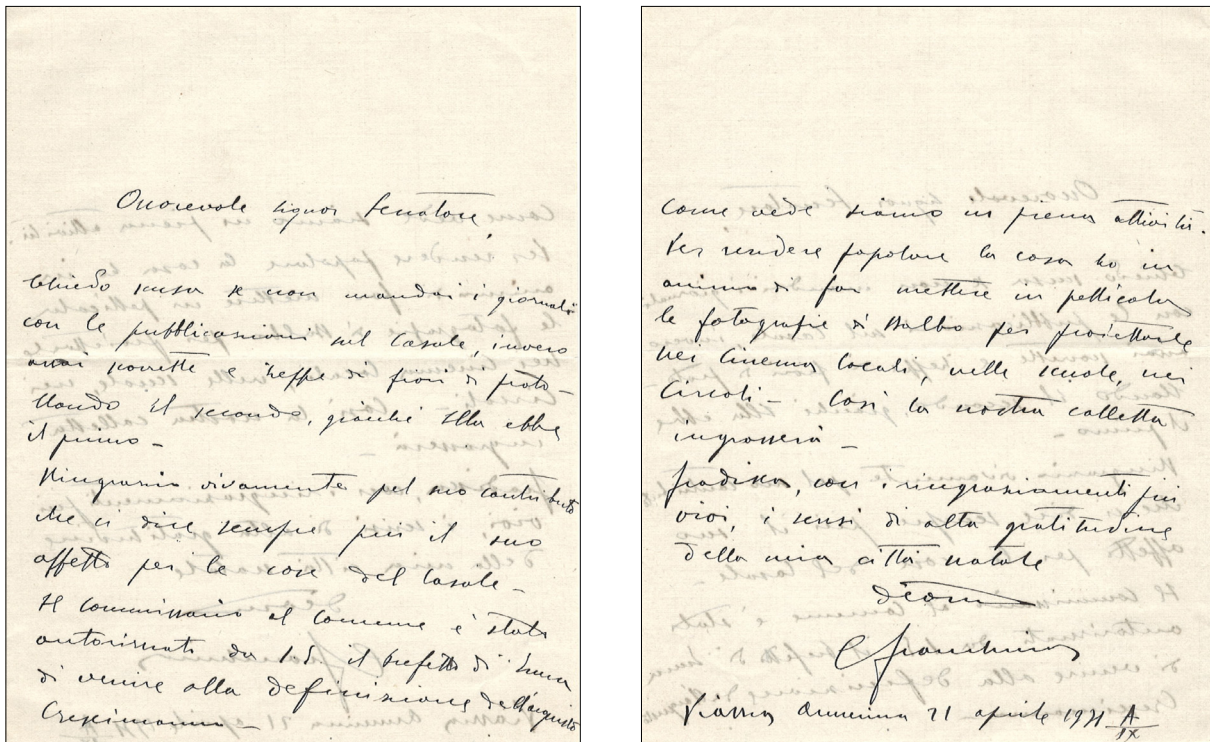 Onorevole Signor Senatore,
Chiedo scusa se non mandai i giornali
con le pubblicazioni sul Casale, invero
assai corrette e zeppe di fiori di proto-
Mando il secondo, giacché Ella ebbe
il primo-
Ringrazio vivamente pel suo contributo
che ci dice sempre più il suo
affetto per le cose del Casale-
Il Commissario al Comune è stato
autorizzato da S.E. il Prefetto di Enna
di venire alla definizione dell'acquisto
Crescimanno-
come vede siamo in piena attività.
Per rendere popolare la cosa ho in
animo di far mettere in pellicola
le fotografie di Balbo per proiettarle
nei Cinema locali, nelle scuole, nei
Circoli- Così la nostra colletta
ingrosserà-
Gradisca, con i ringraziamenti più
vivi, i sensi di alta gratitudine
della mia città natale
Piazza Armerina 21 aprile 1931 A
IX